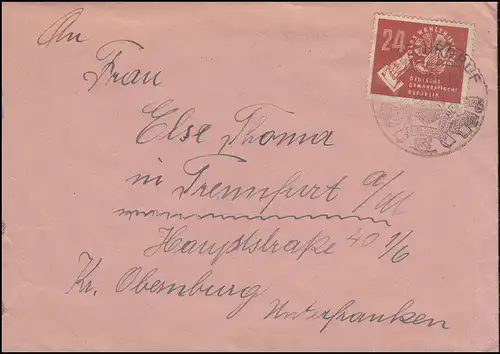 An
Frau
Else Thoma
in Trennfurt a/M
Hauptstraße 40 1/6
Kr. Obernburg
Unterfranken
24
DEUTSCHE
DEMOKRATISCHE
REPUBLIK